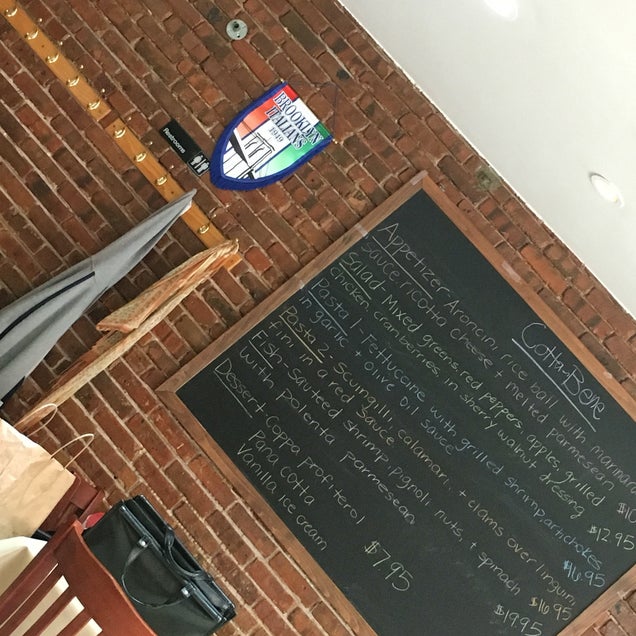 BROOKLYN
ITALIANS
1949
Restrooms
Cotta-Bene
Appetizer Aroncini, rice ball with marinara
sauce, ricotta cheese + melted parmesean
Salad- Mixed greens, red peppers, apples, grilled
chicken, cranberries, in sherry walnut dressing $12.95
Pasta 1- Fettuccine with grilled shrimp, artichokes
in garlic + olive oil sauce $16.95
Pasta 2- Swingili, calamari, + clams over linguini
fini in a red sauce $16.95
Fish- sauteed shrimp, pignoli nuts, + spinach
with polenta parmesean $19.95
Dessert- Coppa profiterol
Pana cotta $7.95
Vanilla ice cream